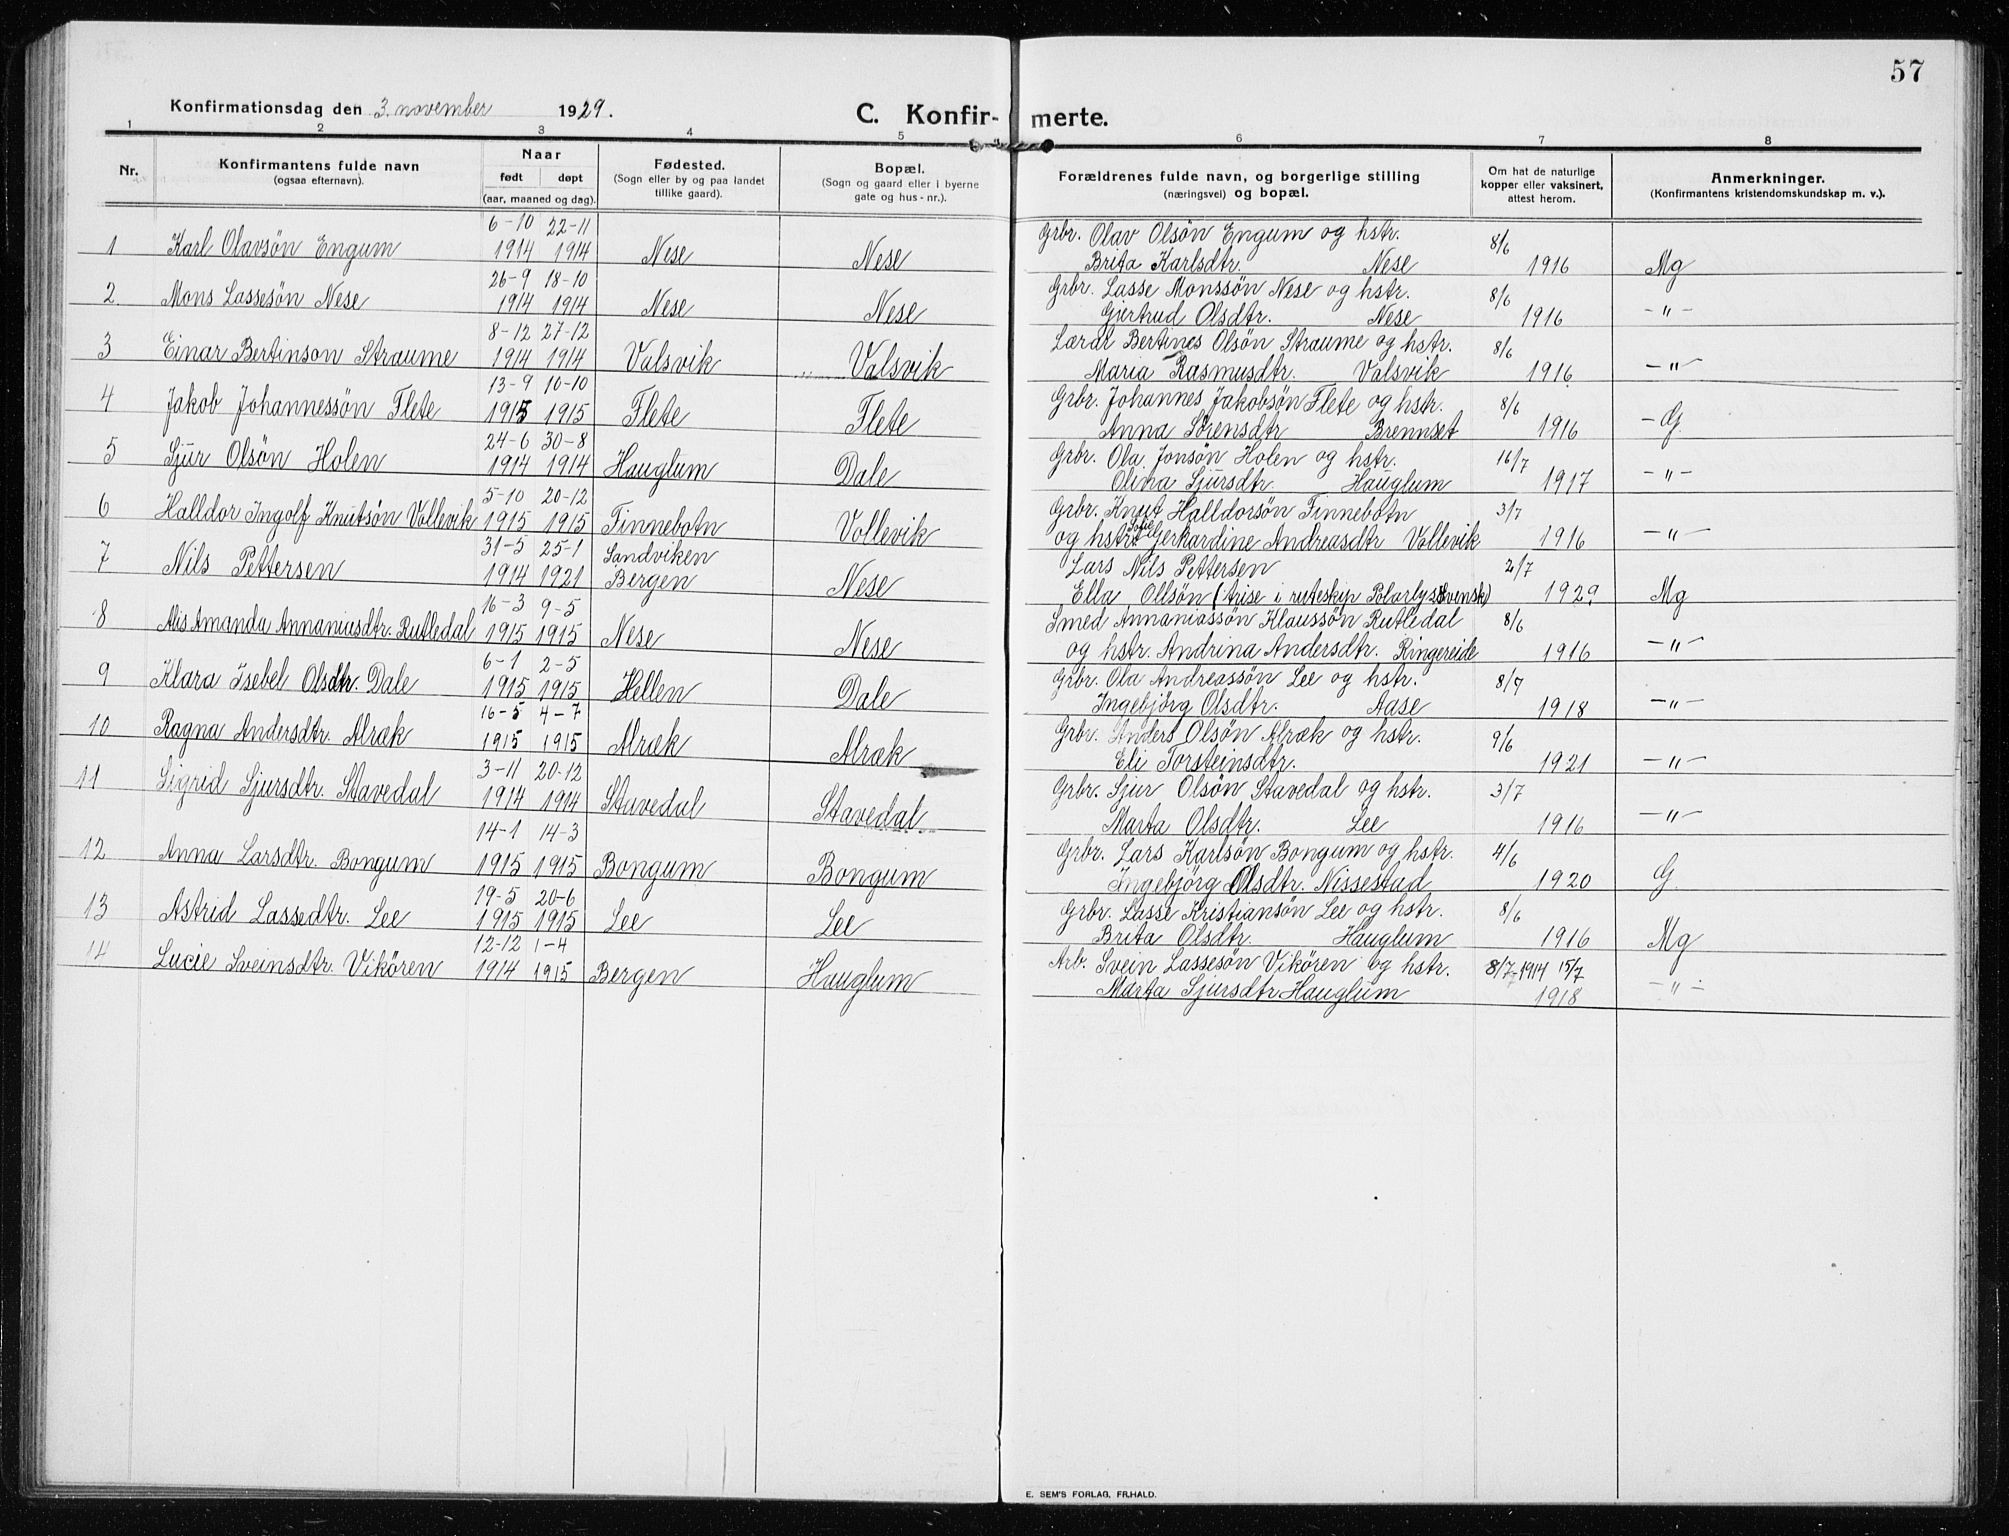 57
Konfirmationsdag den 3. november 1929.
C. Konfir- merte.
1 2 3 4 5 6 7 8
Nr.
Konfirmantens fulde navn
(ogsaa efternavn).
Naar
født døpt
(aar, maaned og dag).
Fødested.
(Sogn eller by og paa landet
tillike gaard).
Bopæl.
(Sogn og gaard eller i byerne
gate og hus-nr.).
Forældrenes fulde navn, og borgerlige stilling
(næringsvei) og bopæl.
Om hat de naturlige
kopper eller vaksinert,
attest herom.
Anmerkninger.
(Konfirmantens kristendomskundskap m. v.).
6-10 22-11 Grbr. Olav Olsön Engum og hstr. 8/6
1 Karl Olavsön Engum 1914 1914 Nese Nese Brita Karlsdtr. Nese 1916 Mg
26-9 18-10 Grbr. Lasse Monssön Nese og hstr. 8/6
2 Mons Lassesön Nese 1914 1914 Nese Nese Gjertrud Olsdtr. Nese 1916 -"-
8-12 27-12 Lærar Bertines Olsön Straume og hstr. 8/6
3 Einar Bertinson Straume 1914 1914 Valsvik Valsvik Maria Rasmusdtr. Valsvik 1916 -"-
13-9 10-10 Grbr. Johannes Jakobsön Flete og hstr. 8/6
4 Jakob Johannessön Flete 1915 1915 Flete Flete Anna Sörensdtr Brennset 1916 -G.
24-6 30-8 Grbr. Ola Jonsön Holen og hstr. 16/7
5 Sjur Olsön Holen 1914 1914 Hauglum Dale Olina Sjursdtr. Hauglum 1917 -"-
5-10 20-12 Grbr. Knut Halldorsön Finnebotn 3/7
6 Halldor Ingolf Knutsön Vollevik 1915 1915 Finnebotn Vollevik og hstr. Sofie Gerhardine Andreasdtr Vollevik 1916 -"-
31-5 25-1 Sandviken Lars Nils Pettersen 2/7
7 Nils Pettersen 1914 1921 Bergen Nese Ella Ollsön (trise i ruteskip Polarlys. Svensk) 1929 Mg
16-3 9-5 Smed Annaniassön Klaussön Rutledal 8/6
8 Alis Amanda Annaniasdtr. Rutledal 1915 1915 Nese Nese og hstr. Andrina Andersdtr. Ringereide 1916 -"-
6-1 2-5 Grbr. Ola Andreassön Lee og hstr. 8/7
9 Klara Isebel Olsdtr. Dale 1915 1915 Hellen Dale Ingebjörg Olsdtr. Aase 1918 -"-
16-5 4-7 Grbr. Anders Olsön Alræk og hstr. 9/6
10 Ragna Andersdtr. Alræk 1915 1915 Alræk Alræk Eli Torsteinsdtr. 1921 -"-
3-11 20-12 Grbr. Sjur Olsön Stavedal og hstr. 3/7
11 Sigrid Sjursdtr. Stavedal 1914 1914 Stavedal Stavedal Marta Olsdtr. Lee 1916 -"-
14-1 14-3 Grbr. Lars Karlsön Bongum og hstr. 4/6
12 Anna Larsdtr. Bongum 1915 1915 Bongum Bongum Ingebjörg Olsdtr. Nissestad 1920 G.
19-5 20-6 Grbr. Lasse Kristiansön Lee og hstr. 8/6
13 Astrid Lassedtr. Lee 1915 1915 Lee Lee Brita Olsdtr. Hauglum 1916 Mg
12-12 1-4 Arb. Svein Lassesön Vikören og hstr. 8/7-1914 15/7
14 Lucie Sveinsdtr. Vikören 1914 1915 Bergen Hauglum Marta Sjursdtr Hauglum 1918 -"-
E. SEM'S FORLAG, FR.HALD.